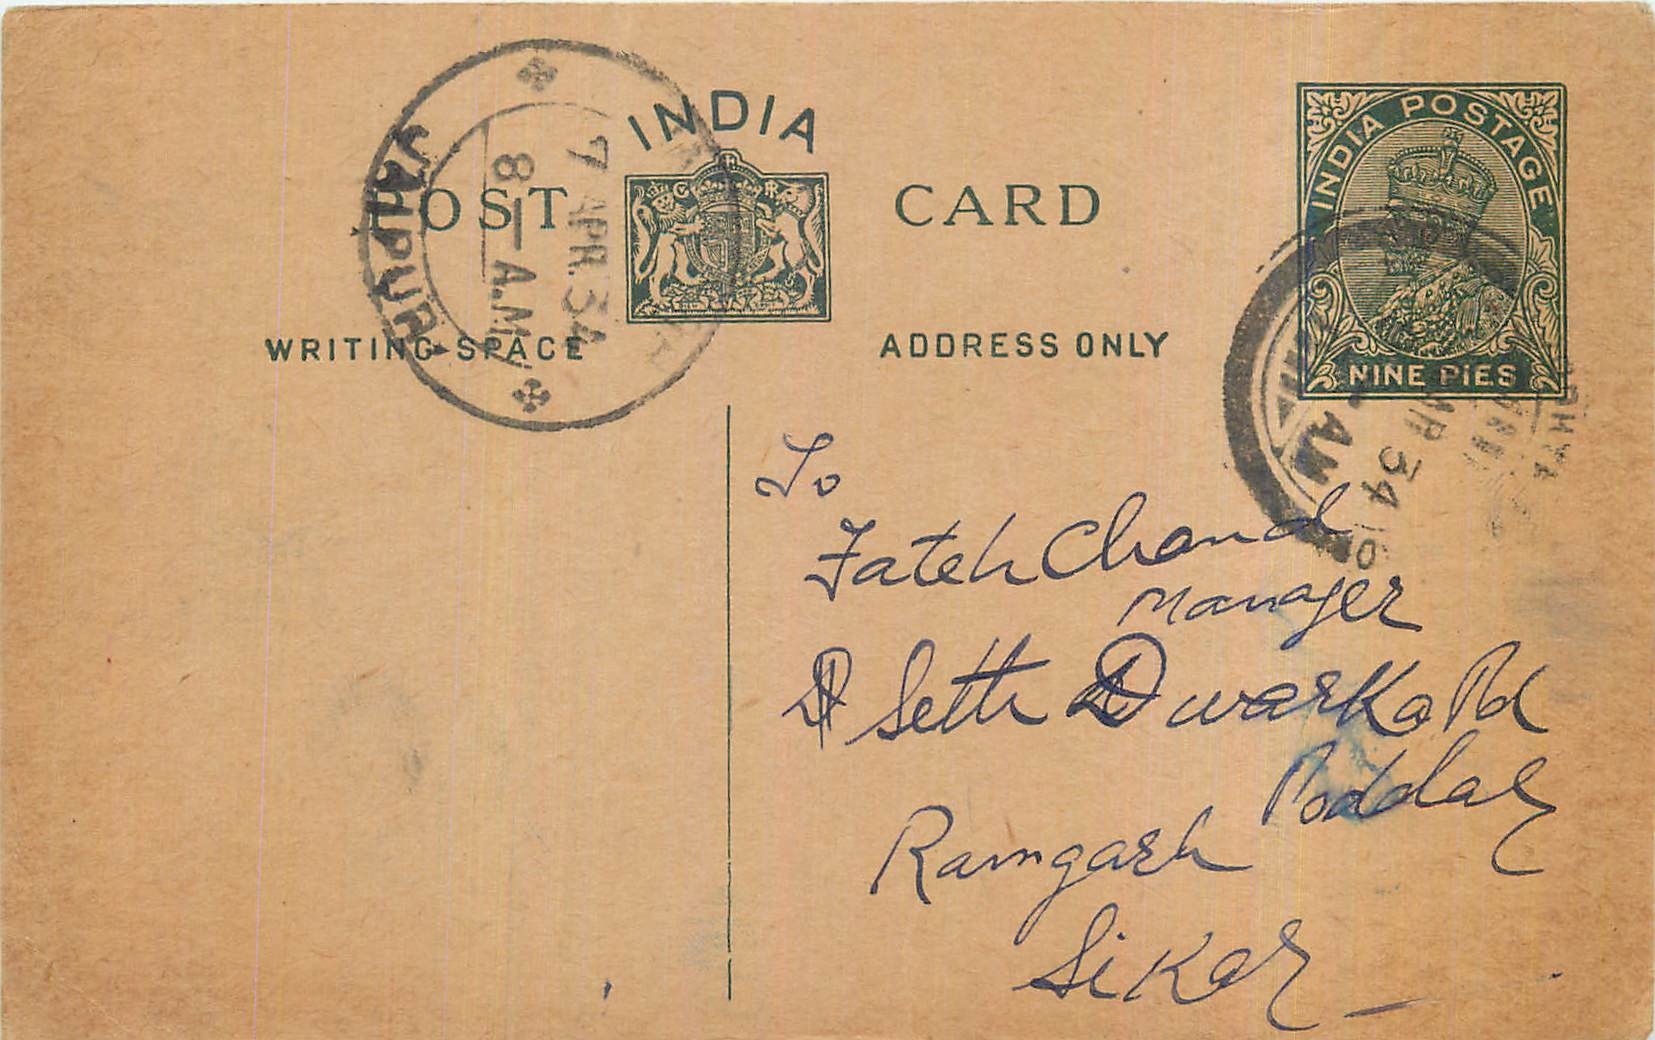 INDIA
POST CARD
WRITING SPACE ADDRESS ONLY
INDIA POSTAGE
NINE PIES
JAIPUR
7 APR. 34
8-A.M.
34
AM
To
Fateh Chand
Manager
Seth Dwarka Pd
Poddar
Ramgarh
Sikar